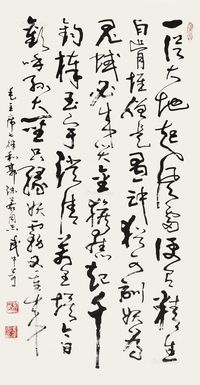 一從大地起風雷便有精生
白骨堆僧是愚氓猶可訓妖為
鬼蜮必成災金猴奮起千
鈞棒玉宇澄清萬里埃今日
歡呼孫大聖只緣妖霧又重來
毛主席詩和郭沫若同志